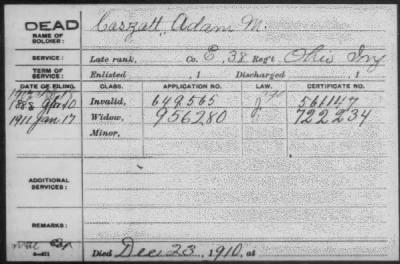 DEAD
NAME OF SOLDIER:
Caszatt, Adam M.
SERVICE:
Late rank, Co. E, 38 Reg't Ohio Inf
TERM OF SERVICE:
Enlisted , 1 Discharged , 1
DATE OF FILING. CLASS. APPLICATION NO. LAW. CERTIFICATE NO.
1888 Invalid, 649565 J 561147
1911 Jan 17 Widow, 956280 722234
Minor,
ADDITIONAL SERVICES:
REMARKS:
Died Dec 23, 1910, at